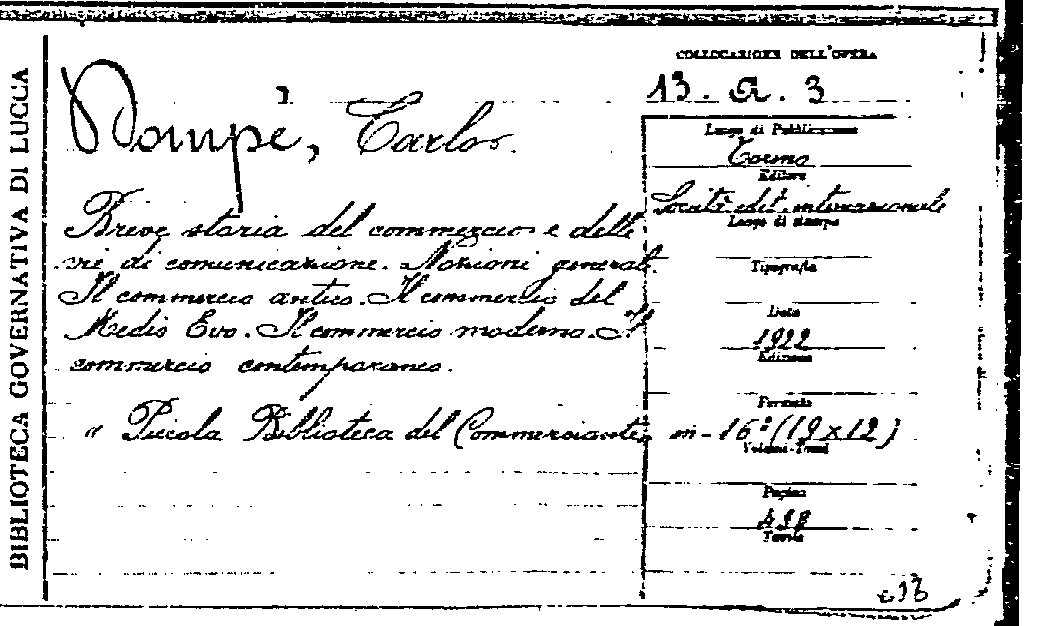 BIBLIOTECA GOVERNATIVA DI LUCCA
COLLOCAZIONE DELL'OPERA
13. a. 3
Pompè, Carlo.
Luogo di Pubblicazione
Torino
Editore
Società edit. internazionale
Luogo di stampa
Tipografia
Data
1922
Edizione
Formato
in-16º (19x12)
Volumi-Tomi
Pagine
Tavole
Breve storia del commercio e delle
vie di comunicazione. Nozioni general.
Il commercio antico. Il commercio del
Medio Evo. Il commercio moderno. Il
commercio contemporaneo.
" Piccola Biblioteca del Commerciante